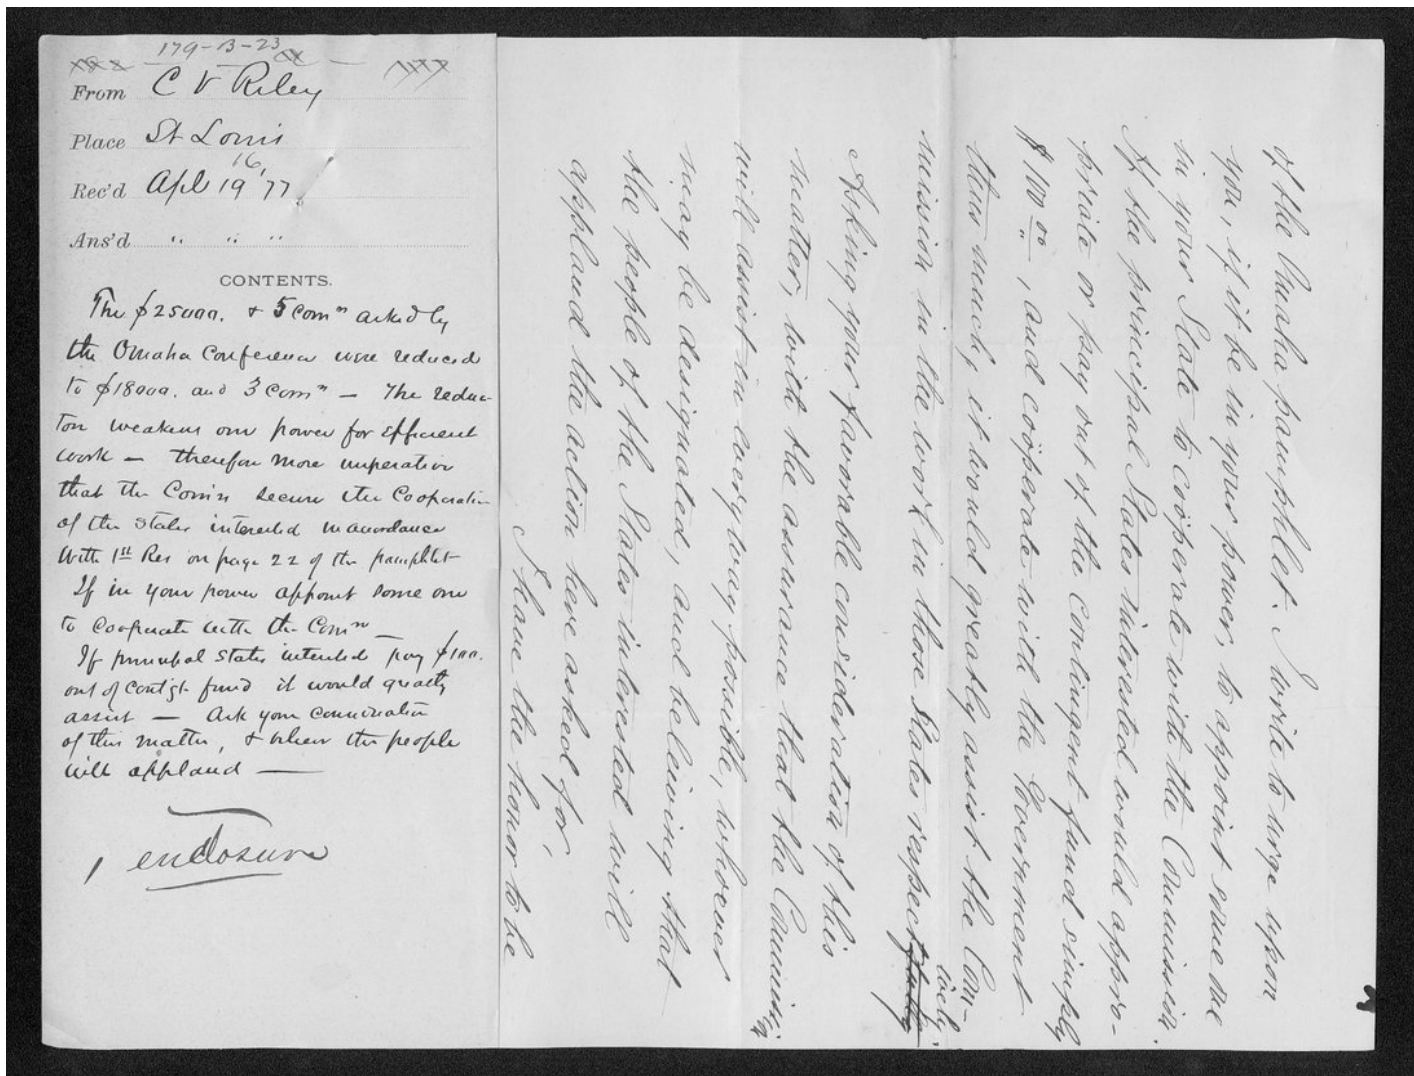 179-B-23
From C V Riley
Place St Louis
16
Rec'd Apl 19 '77
Ans'd " " "
CONTENTS.
The $25000. & 5 Comn asked by
the Omaha Conference were reduced
to $18000. and 3 Comn — The reduc-
ton weakens our power for efficient
work — therefore more imperative
that the Comn secure the Cooperation
of the States interested in accordance
with 1st Res on page 22 of the pamphlet
If in your power appoint some one
to Cooperate with the Comn
If principal States interested pay $100.
out of contgt fund it would greatly
assist — Ask your consideration
of this matter, & believe the people
will applaud —
1 enclosure
of the Omaha pamphlet. I write to urge upon
you, if it be in your power, to appoint some one
in your State to coöperate with the Commission.
If the principal States interested would appro-
priate or pay out of the contingent fund simply
$100 00, and coöperate with the Government
thus much, it would greatly assist the Com-
mission in the work in those States respectfully
tively.
Asking your favorable consideration of this
matter, with the assurance that the Commission
will assist in every way possible, whoever
may be designated, and believing that
the people of the States interested will
applaud the action here asked for,
I have the honor to be